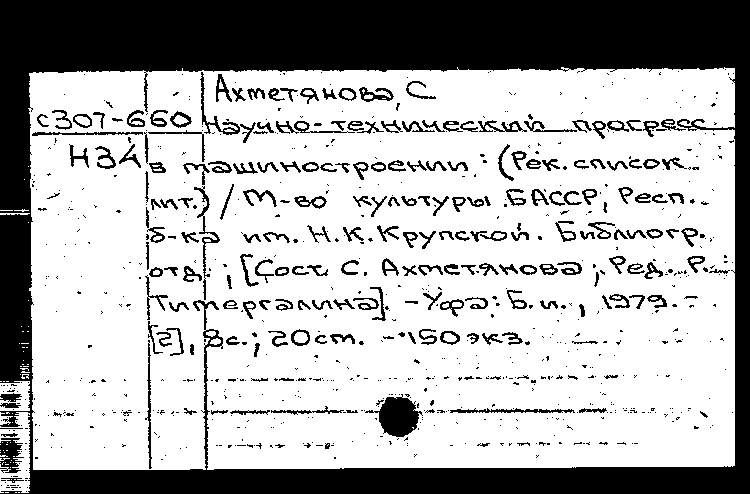 Ахметянова, С
с307-660 Научно-технический прогресс
Н34 в машиностроении: (Рек. список
лит.) / М-во культуры БАССР, Респ.
б-ка им. Н.К. Крупской. Библиогр.
отд.; [Сост. С. Ахметянова; Ред. Р.
Тимергалина]. - Уфа: Б.и., 1979. -
[2], 8с.; 20см. - 150экз.